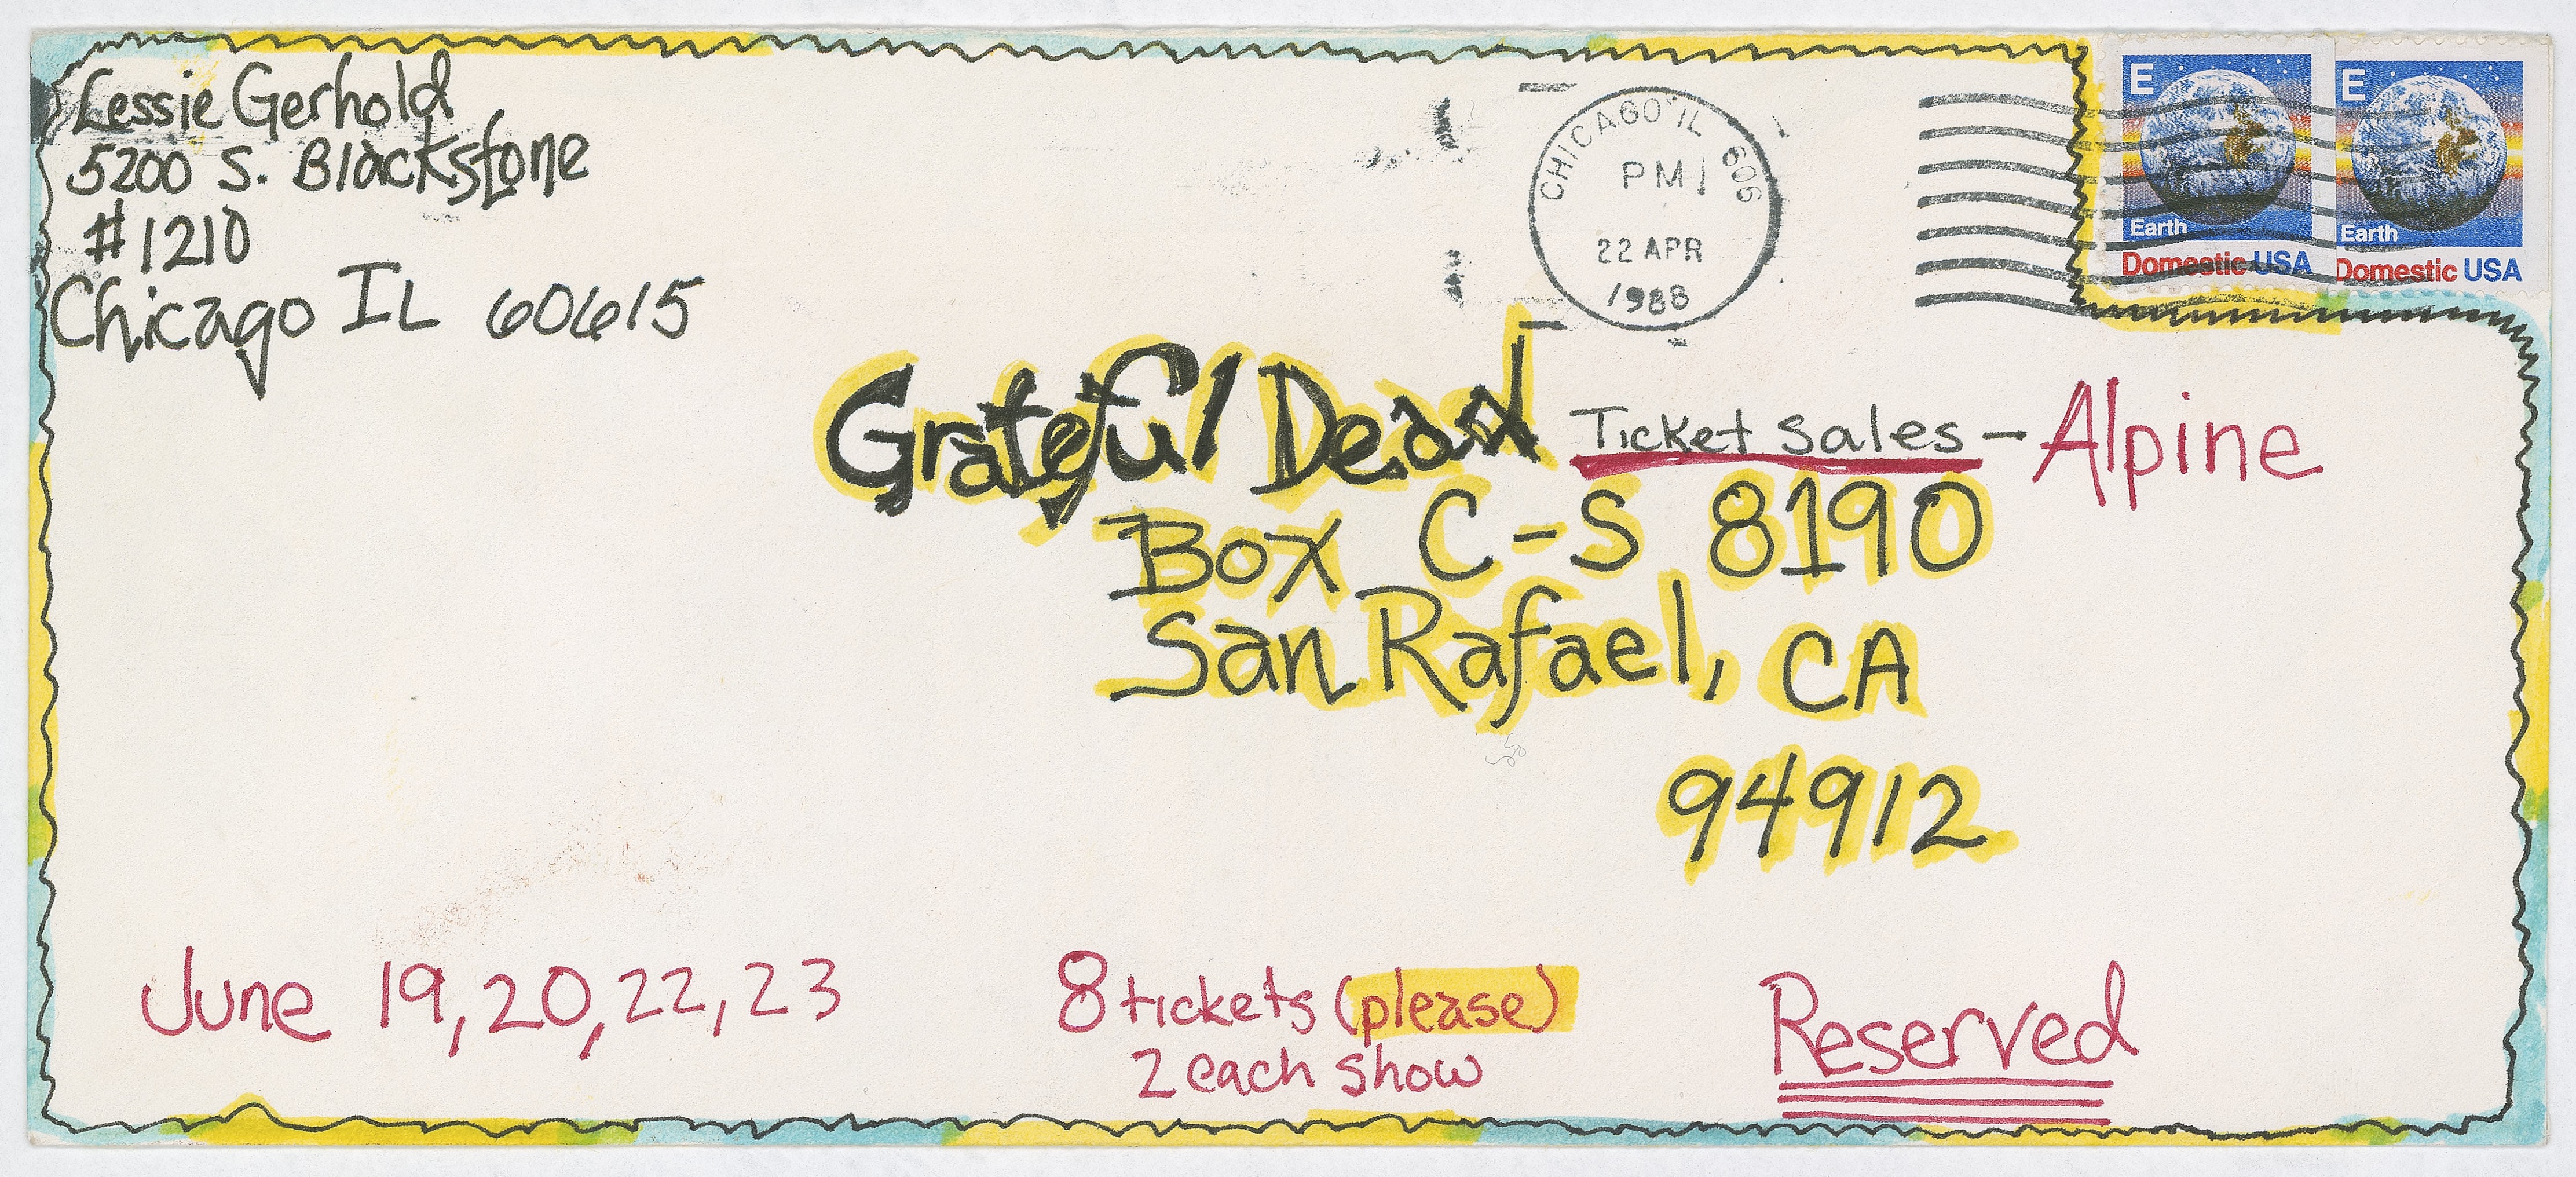 Lessie Gerhold
5200 S. Blackstone
#1210
Chicago IL 60615
CHICAGO IL 606
PM
22 APR
1988
E
Earth
Domestic USA
E
Earth
Domestic USA
Grateful Dead Ticket Sales - Alpine
Box C-S 8190
San Rafael, CA
94912
June 19, 20, 22, 23
8 tickets (please)
2 each show
Reserved